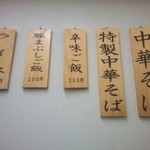 中華そば
特製中華そば
辛味ご飯
200円
豚まぶしご飯
200円